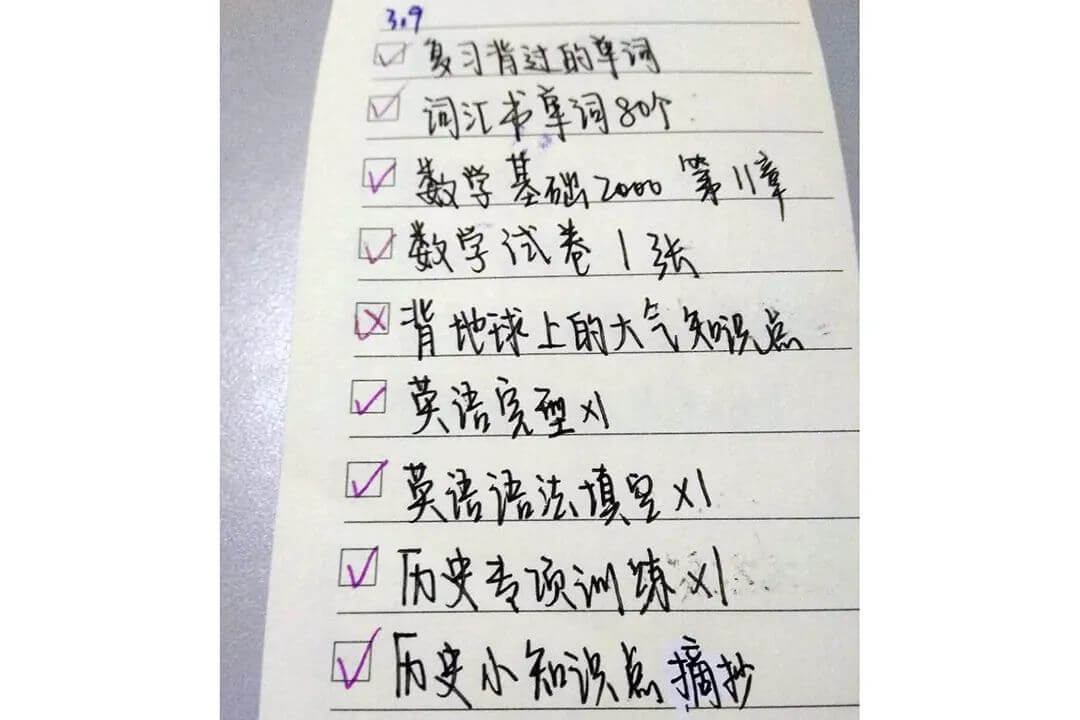 3.9
复习背过的单词
词汇书单词80个
数学基础2000 第11章
数学试卷1张
背地球上的大气知识点
英语完型x1
英语语法填空x1
历史专项训练x1
历史小知识点摘抄